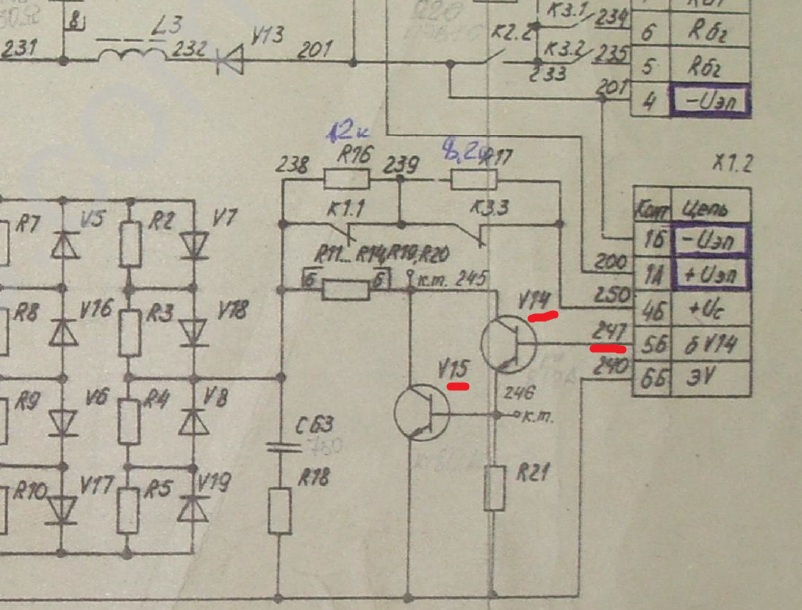 8
L3
231
232
V13
201
K2.2
K3.1
234
K3.2
235
233
201
6 Rбг
5 Rбг
4 -Uэп
X1.2
Конт Цепь
1Б -Uэп
200 1А +Uэп
250 4Б +Uс
247 5Б б V14
240 6Б ЭV
12к
8,2к
238 R16 239 R17
K1.1 K3.3
R11...R14,R19,R20
б б к.т. 245
V14
V15
246
к.т.
R21
C63
R18
R7 V5 R2 V7
R8 V16 R3 V18
R9 V6 R4 V8
R10 V17 R5 V19